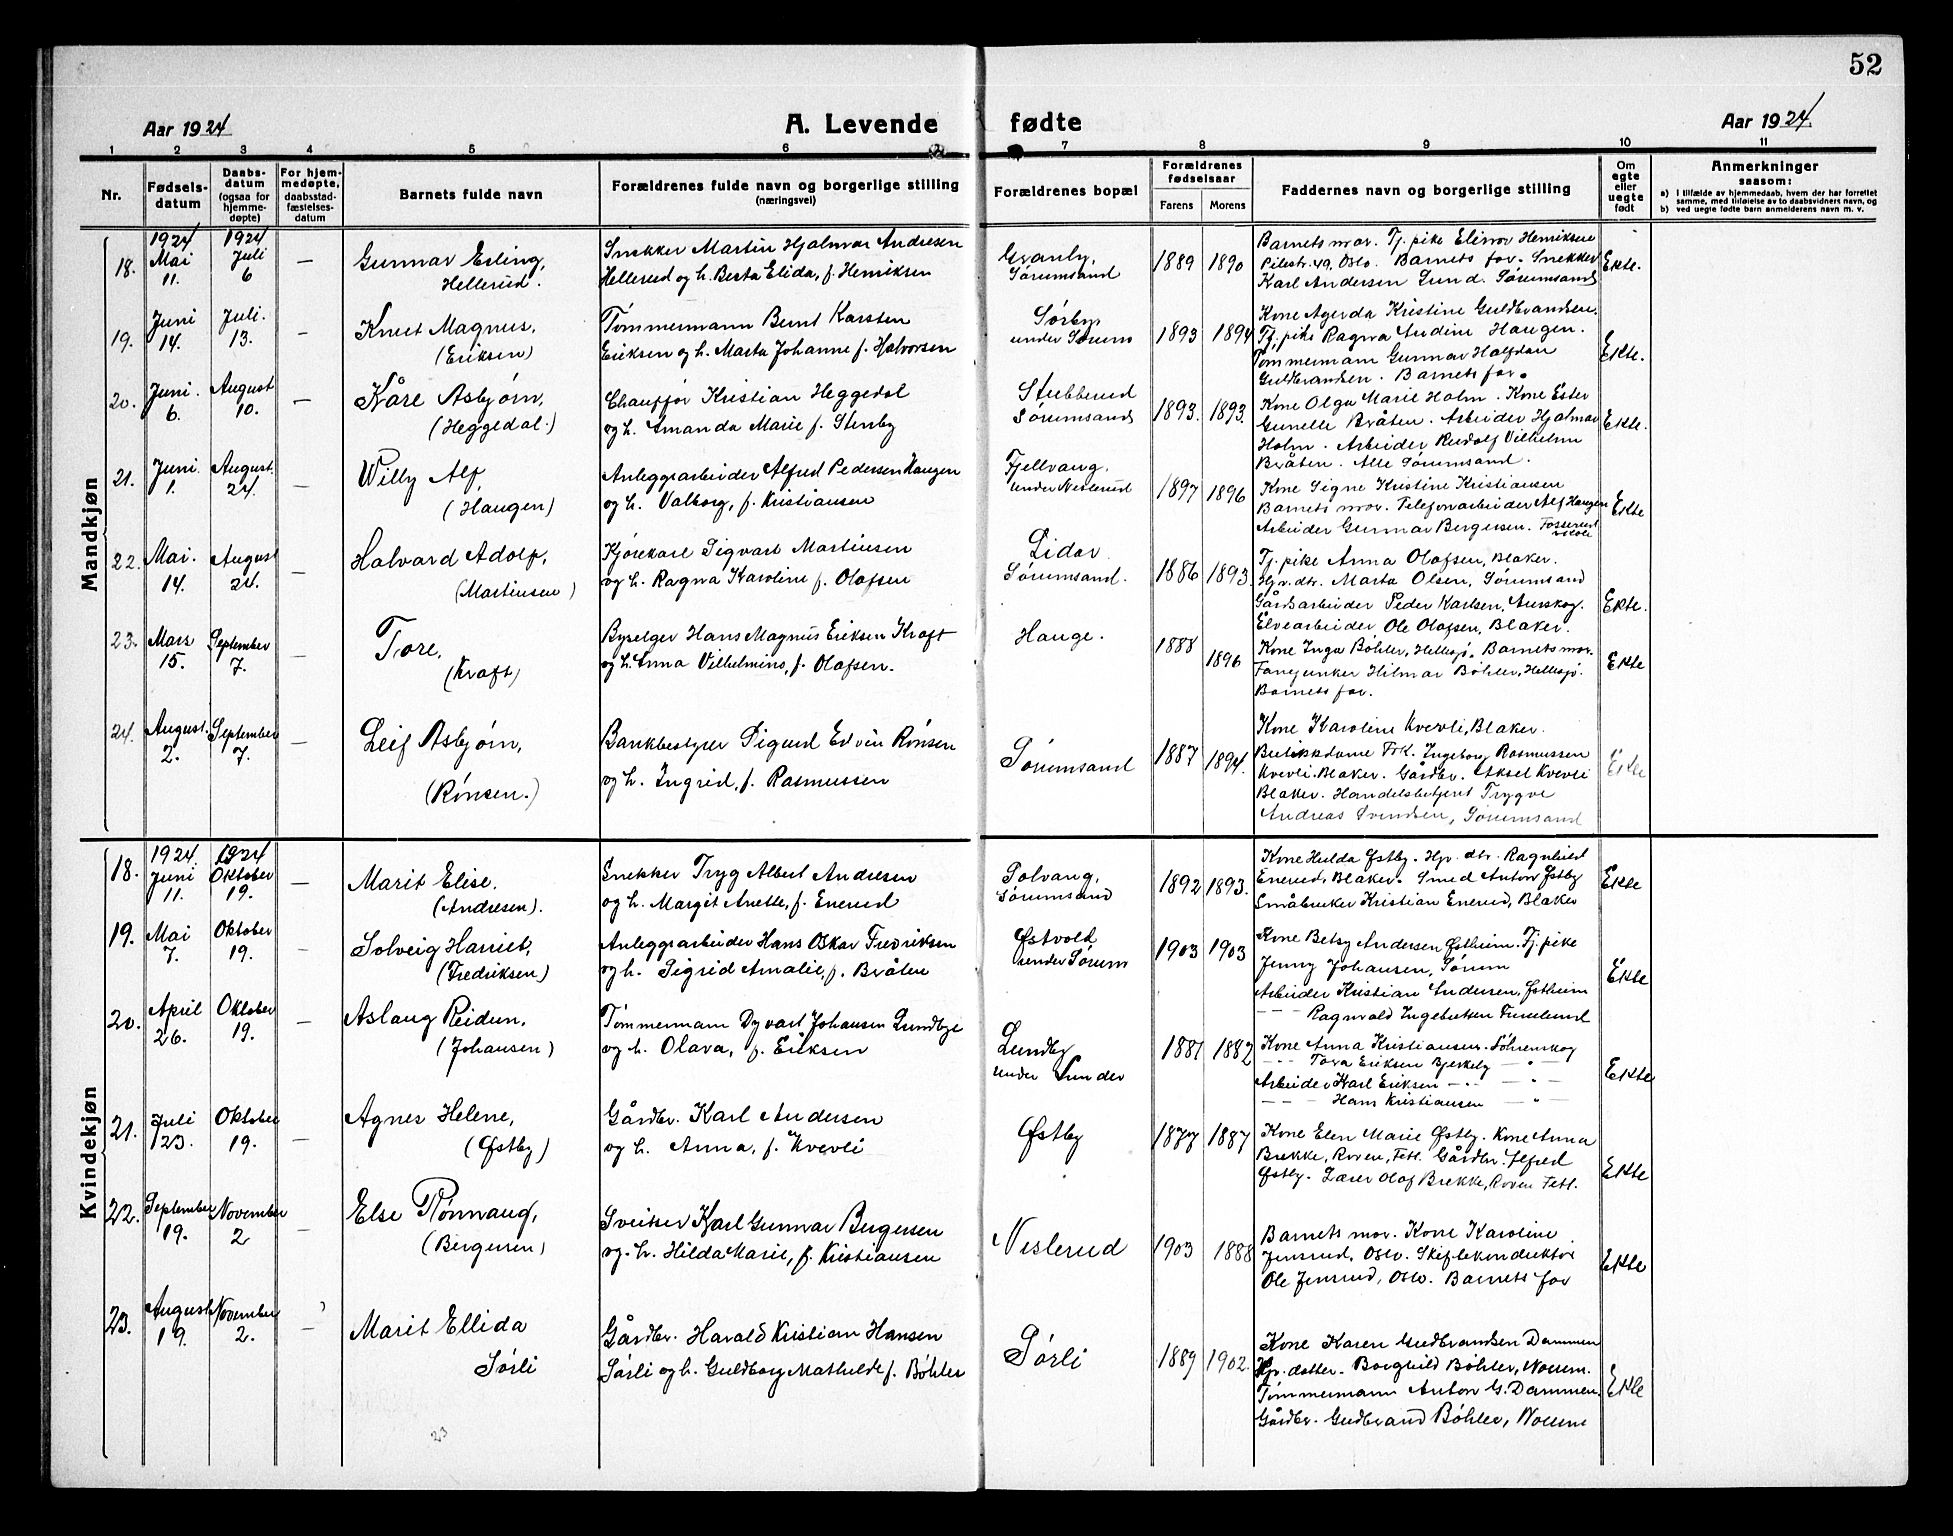 52
Aar 1924
A. Levende
fødte
Aar 1924.
1 2 3 4 5 6 7 8 9 10 11
Nr.
Fødsels-
datum
Daabs-
datum
(ogsaa for
hjemme-
døpte)
For hjem-
medøpte,
daabsstad-
fæstelses-
datum
Barnets fulde navn
Forældrenes fulde navn og borgerlige stilling
(næringsvei)
Forældrenes bopæl
Forældrenes
fødselsaar
Farens Morens
Faddernes navn og borgerlige stilling
Om
egte
eller
uegte
født
Anmerkninger
saasom:
a) I tilfælde av hjemmedaab, hvem der har forrettet
samme, med tilføielse av to daabsvidners navn, og
b) ved uegte fødte barn anmelderens navn m. v.
Mandkjøn
18. 1924 Mai 11. 1924 Juli 6 —
Gunnar Erling,
Hellerud.
Snekker Martin Hjalmar Andresen
Hellerud og h. Berta Elida, f. Henriksen
Granly,
Sørumsand
1889 1890
Barnets mor. Tj. pike Elinor Henriksen
Pilestr. 49, Oslo. Barnets far. Snekker
Karl Andersen Lund. Sørumsand
Ekte.
19. Juni 14. Juli. 13. —
Knut Magnus,
(Eriksen)
Tømmermann Bernt Karsten
Eriksen og h. Marta Johanne f. Halvorsen
Sørby
under Sørum
1893 1894
Kone Agerda Kristine Guldbrandsen.
Tj. pike Ragna Andine Haugen.
Tømmermann Gunnar Halfdan
Guldbrandsen. Barnets far.
Ekte.
20. Juni. 6. August 10. —
Kåre Asbjørn,
(Heggedal.)
Chauffør Kristian Heggedal
og h. Amanda Marie f. Stenby
Stubberud
Sørumsand
1893. 1893.
Kone Olga Marie Holm. Kone Ester
Gunelle Bråten. Arbeider Hjalmar
Holm. Arbeider Rudolf Vilhelm
Bråten. Alle Sørumsand.
Ekte.
21. Juni. 1. August. 24. —
Willy Alf,
(Haugen)
Anleggsarbeider Alfred Pedersen Haugen
og h. Valborg, f. Kristiansen
Fjellvang.
under Neslerud
1897 1896
Kone Signe Kristine Kristiansen
Barnets mor. Telefonarbeider Alf Haugen
Arbeider Gunnar Bergersen. Fosserud
skole
Ekte
22. Mai. 14. August 24. —
Halvard Adolf,
(Martinsen)
Kjørekarl Sigvart Martinsen
og h. Ragna Karoline f. Olafsen
Lidar
Sørumsand.
1886 1893.
Tj. pike Anna Olafsen, Blaker.
Hjv. dtr. Marta Olsen, Sørumsand
Gårdsarbeider Peder Karlsen, Aurskog.
Elvearbeider Ole Olafsen, Blaker.
Ekte.
23. Mars 15. September 7. —
Tore,
(Kraft)
Byselger Hans Magnus Eriksen Kraft
og h. Anna Vilhelmine, f. Olafsen.
Hauge.
1888 1896
Kone Inga Bøhler, Hellesjø. Barnets mor.
Fanejunker Hilmar Bøhler, Hellesjø.
Barnets far.
Ekte
24. August. 2. September 7. —
Leif Asbjørn,
(Rønsen.)
Bankbestyrer Sigurd Edvin Rønsen
og h. Ingrid, f. Rasmussen
Sørumsand
1887 1894.
Kone Karoline Kvevli, Blaker.
Butikkdame Frk. Ingeborg Rasmussen
Kvevli-Blaker. Gårdbr. Aksel Kvevli
Blaker. Handelsbetjent Trygve
Andreas Svendsen, Sørumsand
Ekte
Kvindekjøn
18. 1924. Juni 11. 1924 Oktober 19. —
Marit Elise.
(Andresen).
Snekker Tryg Albert Andresen
og h. Margit Anette, f. Enerud
Solvang,
Sørumsand
1892 1893.
Kone Hulda Østby. Hjv. dtr. Ragnhild
Enerud, Blaker. Smed Anton Østby
Småbruker Kristian Enerud, Blaker
Ekte
19. Mai 7. Oktober 19. —
Solveig Harriet,
(Fredriksen)
Anleggsarbeider Hans Oskar Fredriksen
og h. Sigrid Amalie, f. Bråten
Østvold
under Sørum
1903 1903
Kone Betsy Andersen Østheim. Tj. pike
Jenny Johansen, Sørum
Arbeider Kristian Andersen, Østheim
— — — Ragnvald Ingebretsen
Ekte
20. April 26. Oktober 19. —
Aslaug Reidun,
(Johansen)
Tømmermann Dyvart Johansen Lundbye
og h. Olava, f. Eriksen
Lundby
under Sunder
1881 1882
Kone Anna Kristiansen.
— — Tora Eriksen Bjerkely — " —
Arbeider Karl Eriksen — " — — " —
— — — Hans Kristiansen — " —
Ekte
21. Juli 23. Oktober 19. —
Agnes Helene,
(Østby)
Gårdbr. Karl Andersen
og h. Anna, f. Kvevli
Østby
1877 1887
Kone Elen Marie Østby. Kone Anna
Brekke, Roven, Fetl. Gårdbr. Alfred
Østby. Lærer Olaf Brekke, Roven Fetl.
Ekte
22. September 19. November 2 —
Else Rønnaug,
(Bergersen)
Sveitser Karl Gunnar Bergersen
og h. Hilda Marie, f. Kristiansen
Neslerud
1903 1888
Barnets mor. Kone Karoline
Jensrud, Oslo. Skiftekonduktør
Ole Jensrud, Oslo. Barnets far
Ekte
23. August 19. November 2. —
Marit Ellida
Sørli
Gårdbr. Harald Kristian Hansen
Sørli og h. Guldborg Mathilde f. Bøhler
Sørli
1889 1902.
Kone Karen Gudbrandsen Dammen
Hjv. datter. Borghild Bøhler, Noem.
Tømmermann Anton G. Dammen.
Gårdbr. Gudbrand Bøhler, Noem
Ekte
23